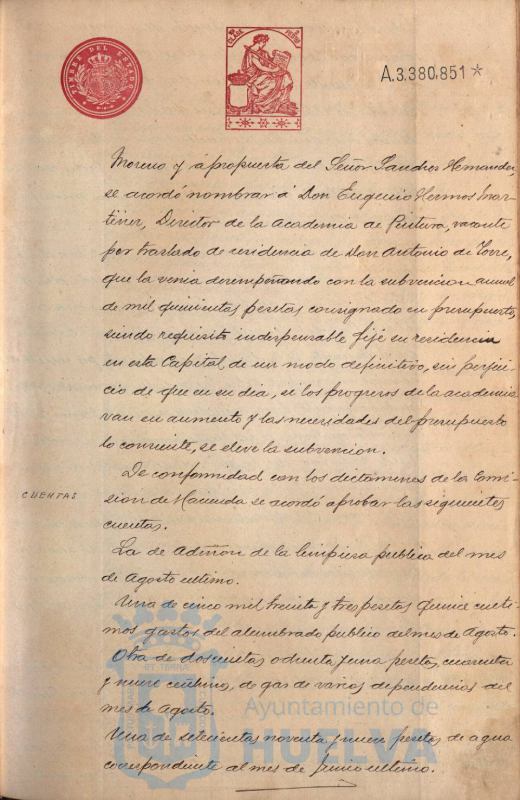 TIMBRE DEL ESTADO
A.3.380.851*
Moreno y a propuesta del Señor Sanchos Hernandez,
se acordó nombrar á Don Eugenio Hermos Mar-
tinez, Director de la Academia de Pintura, vacante
por traslado de residencia de Don Antonio de Torre,
que la venia desempeñando con la subvencion anual
de mil quinientas pesetas consignado en presupuesto,
siendo requisito indispensable fije su residencia
en esta Capital, de un modo definitivo, sin perjui-
cio de que en su dia, si los progresos de la academia
van en aumento y las necesidades del presupuesto
lo consiente, se eleve la subvencion.
De conformidad con los dictamenes de la Comi-
CUENTAS
sion de Hacienda se acordó aprobar las siguientes
cuentas.
La de de la limpieza publica del mes
de Agosto ultimo.
Una de cinco mil treinta y tres pesetas quince centi-
mos gastos del alumbrado publico del mes de Agosto.
Otra de doscientas ochenta y una peseta, cuarenta
y nueve centimos, de gas de varias dependencias del
mes de Agosto.
Una de seiscientas noventa y nueve pesetas, de agua
correspondiente al mes de Junio ultimo.
Ayuntamiento de
HUELVA